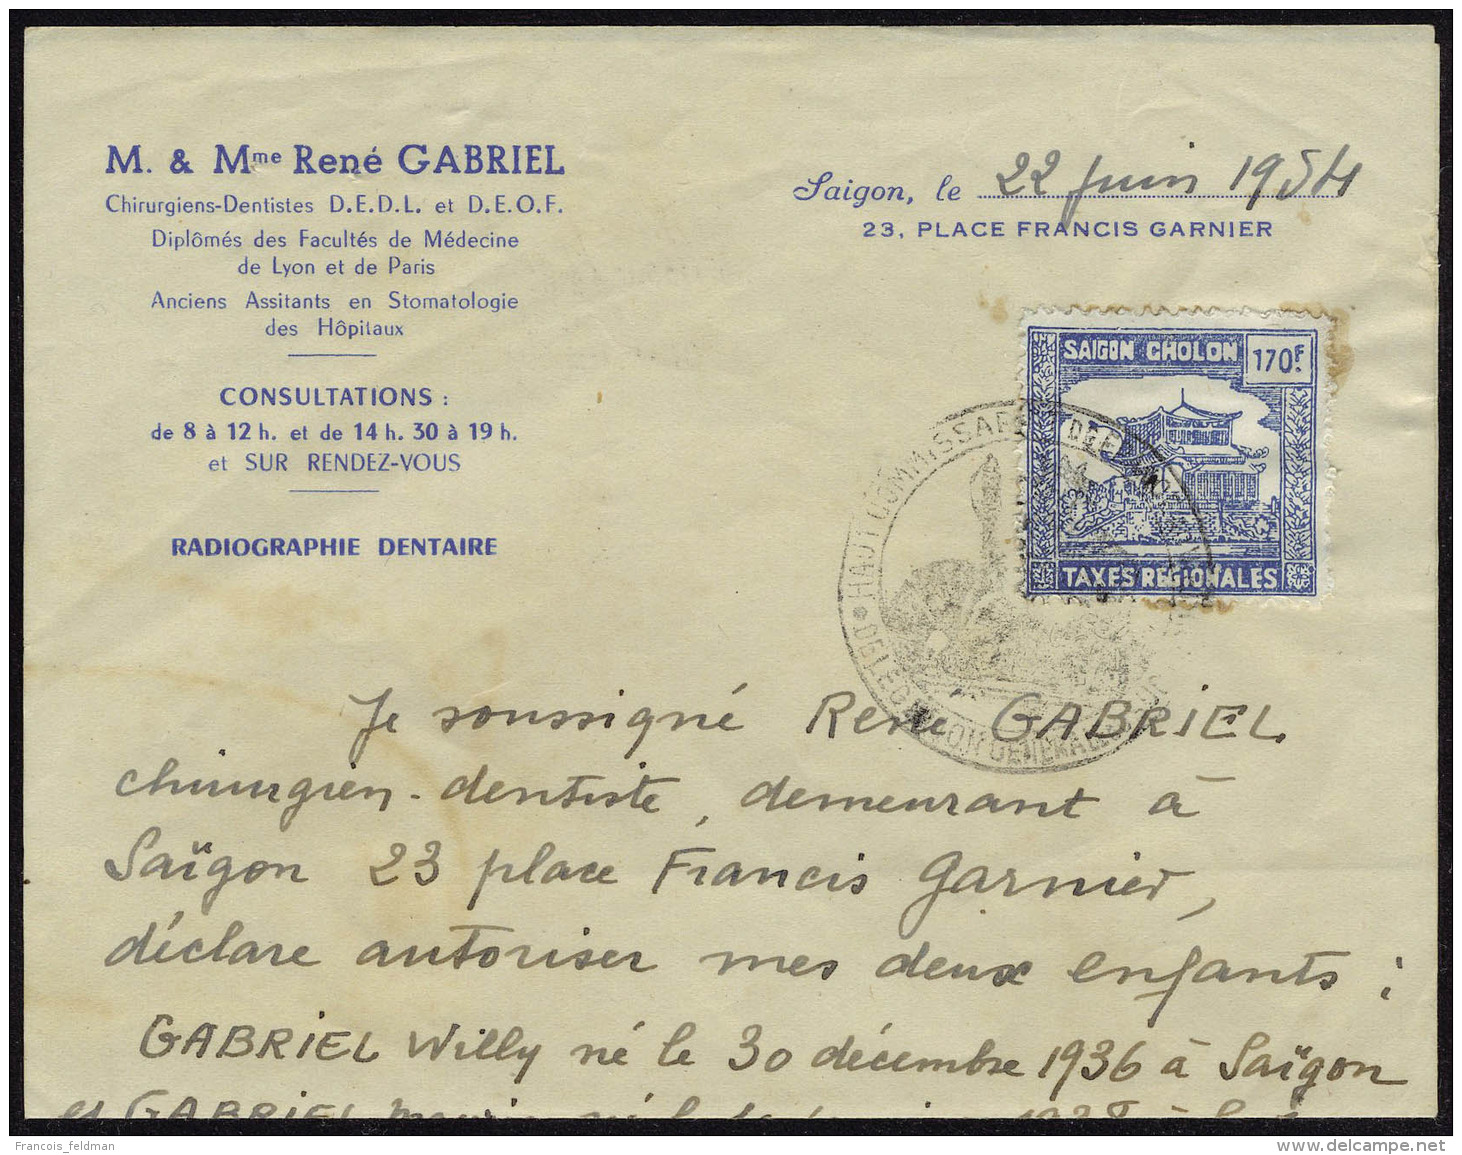 M. & Mme René GABRIEL
Chirurgiens-Dentistes D.E.D.L. et D.E.O.F.
Diplômés des Facultés de Médecine
de Lyon et de Paris
Anciens Assitants en Stomatologie
des Hôpitaux
CONSULTATIONS :
de 8 à 12 h. et de 14 h. 30 à 19 h.
et SUR RENDEZ-VOUS
RADIOGRAPHIE DENTAIRE
Saigon, le 22 juin 1954
23, PLACE FRANCIS GARNIER
SAIGON CHOLON 170F.
TAXES REGIONALES
HAUT COMMISSARIAT DE
DELEGATION GENERALE
Je soussigné René GABRIEL
chirurgien-dentiste, demeurant à
Saïgon 23 place Francis Garnier,
déclare autoriser mes deux enfants :
GABRIEL Willy né le 30 décembre 1936 à Saïgon
et GABRIEL
Francois_feldman
www.delcampe.net